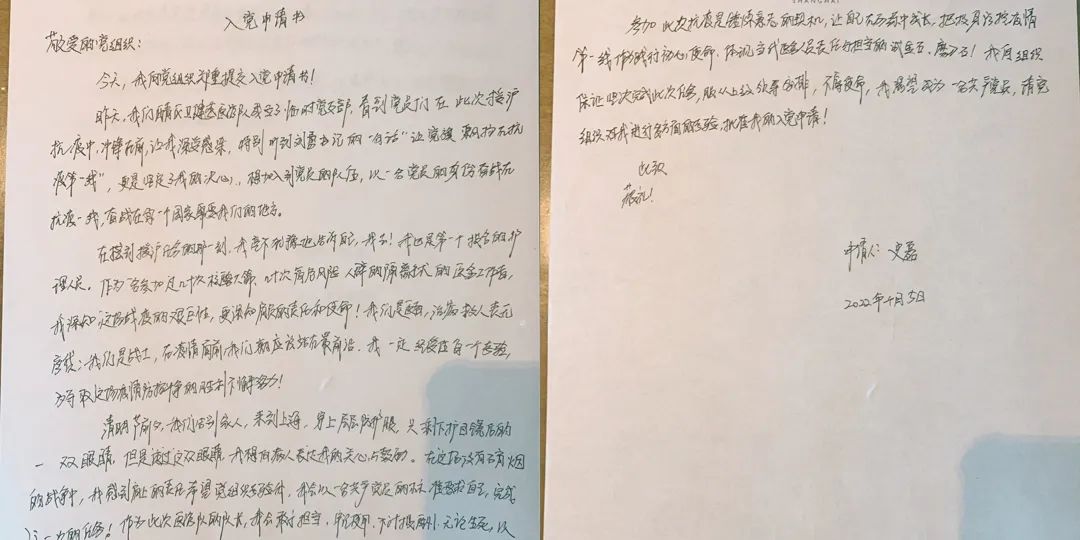 入党申请书
敬爱的党组织：
今天，我向党组织郑重提交入党申请书！
昨天，我们医疗队成立了临时党支部，看到党员们在此次援沪
抗疫中，冲锋在前，让我深受感染，特别听到刘书记的“让党旗飘扬在抗
疫第一线”，更是坚定了我的决心，想加入到党员的队伍，以一名党员的身份奋战在
抗疫一线，奋战在每一个国家需要我们的地方。
在接到援沪任务的那一刻，我毫不犹豫地告诉自己，我去！我也是第一个报名的护
理人员。作为一名参加过几十次核酸大筛、几十次的医务工作者，
我深知这场战疫的艰巨性，更深知肩负的责任和使命！我们是医者，治病救人责无
旁贷；我们是战士，在疫情面前，我们都应该站在最前沿。我一定经受住每一个考验，
为夺取这场疫情防控斗争的胜利不懈努力！
清明节前夕，我们告别家人，来到上海，穿上层层防护服，只剩下护目镜后的
一双眼睛，但是透过这双眼睛，我想向病人表达我的关心与鼓励。在这场没有硝烟
的战争中，我感到肩上的责任，希望党组织考验我，我会以一名共产党员的标准要求自己，完成
作为此次医疗队的队长，我会敢于担当，不计报酬，无论生死，以
SHANGHAI
参加此次抗疫是锤炼意志的契机，让自己在历练中成长，把投身防控疫情
第一线作为践行初心使命、体现当代医务人员责任与担当的试金石、磨刀石！我向组织
保证坚决完成此次任务，服从上级领导安排，不辱使命，我渴望成为一名共产党员，请党
组织对我进行各方面的考验，批准我的入党申请！
此致
敬礼！
申请人：史磊
2022年4月5日